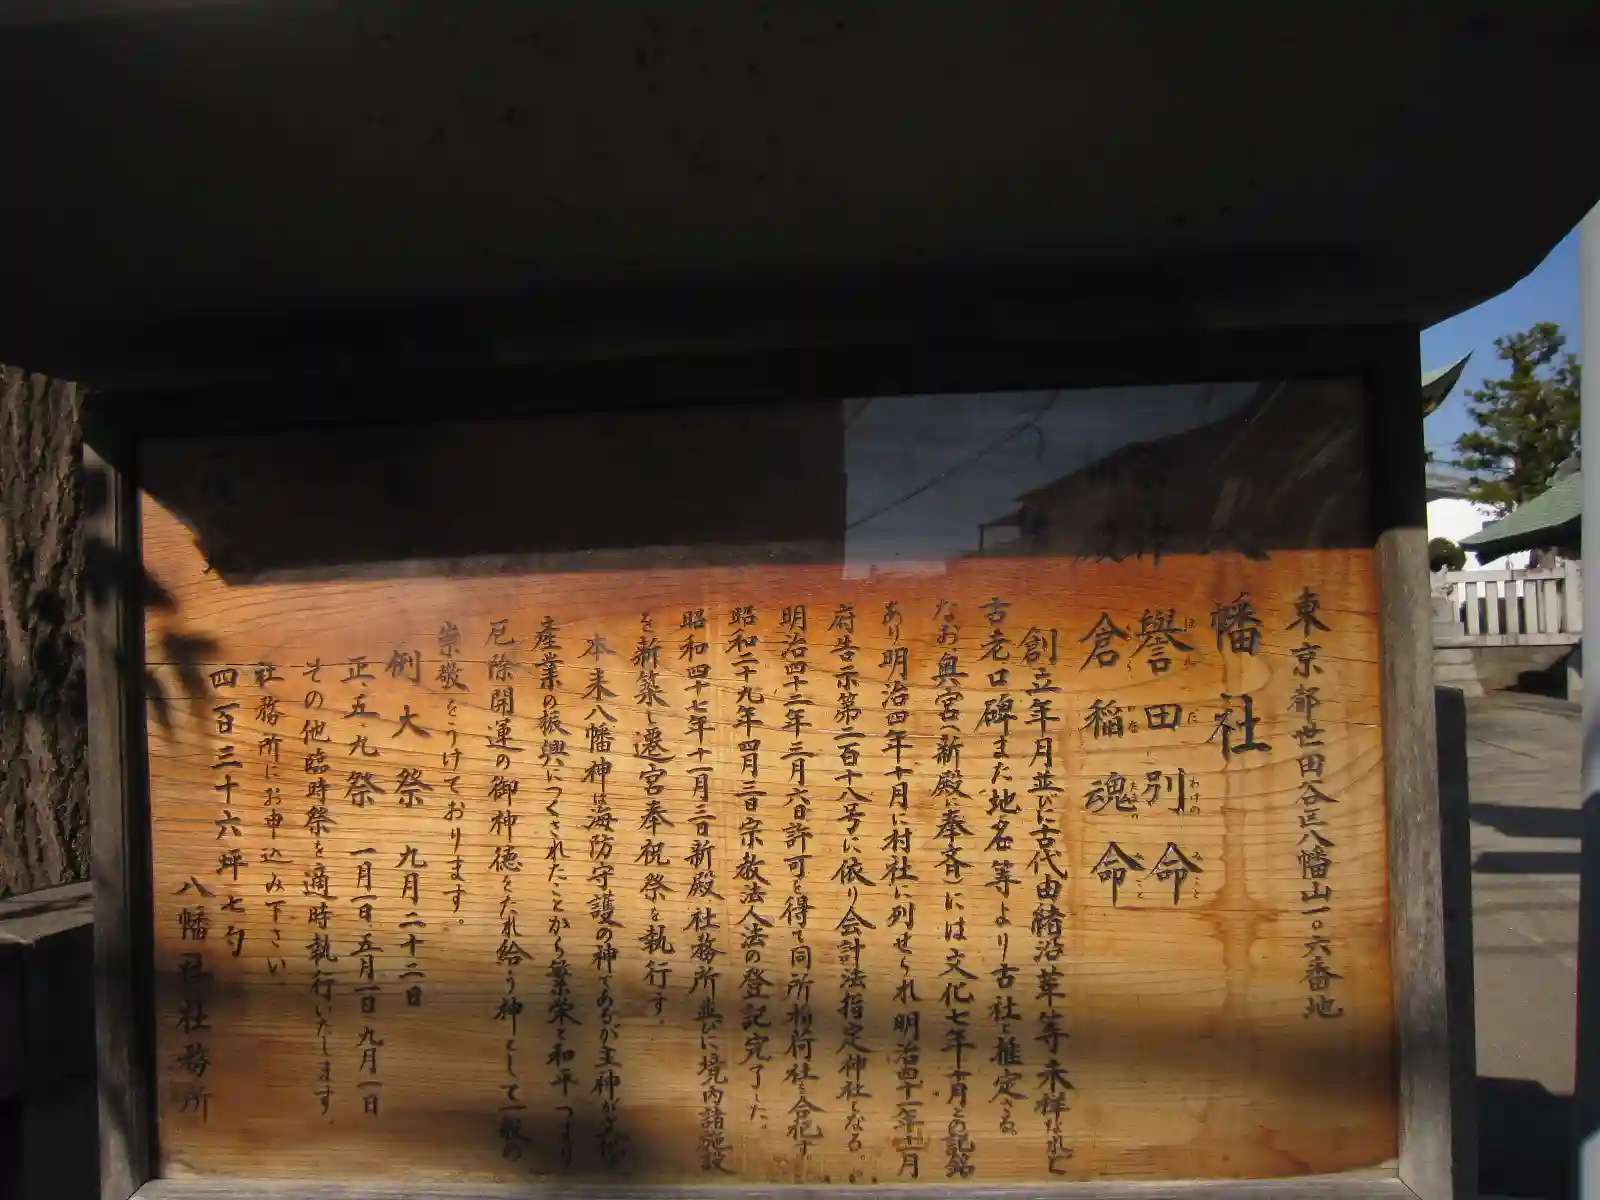 東京都世田谷区八幡山一ο六番地
幡社
譽田別命
ほんだわけのみこと
倉稲魂命
くらいなたまのみこと
創立年月並びに古代由緒沿革等未詳なれど
古老口碑また地名等より古社と推定さる。
なお、奥宮（新殿に奉斉）には文化七年十月との記銘
あり明治四年十月に村社に列せられ明治四十一年十一月
府告示第二百十八号に依り会計法指定神社となる。
明治四十二年三月六日許可を得て同所稲荷社を合祀す。
昭和二十九年四月三日宗教法人法の登記完了した。
昭和四十七年十一月三日新殿社務所並びに境内諸施設
を新築し遷宮奉祝祭を執行す。
本来八幡神は海防守護の神であるが主神が文化
産業の振興につくされたことから繁栄と和平つまり
厄除開運の御神徳をたれ給う神として一般の
崇敬をうけております。
例大祭 九月二十二日
正、五、九祭 一月一日、五月一日、九月一日
その他臨時祭を適時執行いたします。
社務所にお申込み下さい
四百三十六坪七勺
八幡社社務所